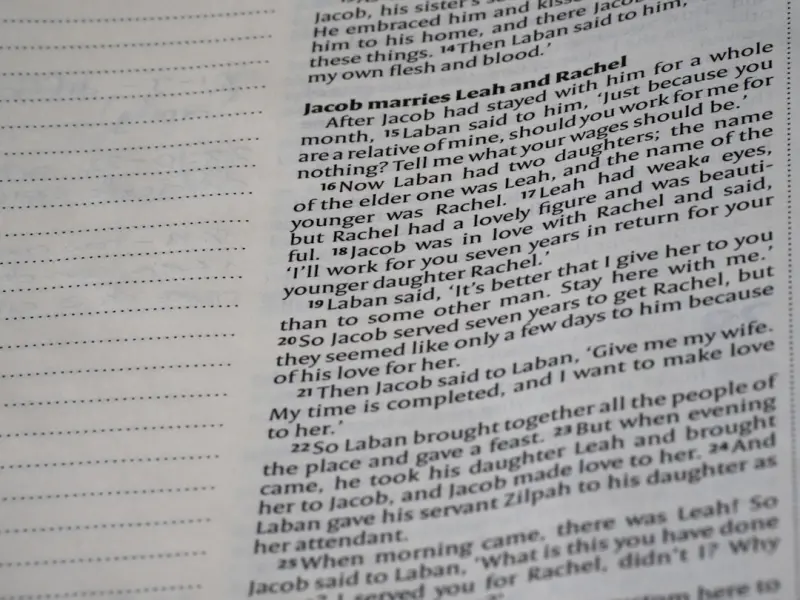 Jacob, his sister's
He embraced him and kissed
him to his home, and there Jacob
these things. 14Then Laban said to him,
my own flesh and blood.'
Jacob marries Leah and Rachel
After Jacob had stayed with him for a whole
month, 15Laban said to him, 'Just because you
are a relative of mine, should you work for me for
nothing? Tell me what your wages should be.'
16Now Laban had two daughters; the name
of the elder one was Leah, and the name of the
younger was Rachel. 17Leah had weaka eyes,
but Rachel had a lovely figure and was beauti-
ful. 18Jacob was in love with Rachel and said,
'I'll work for you seven years in return for your
younger daughter Rachel.'
19Laban said, 'It's better that I give her to you
than to some other man. Stay here with me.'
20So Jacob served seven years to get Rachel, but
they seemed like only a few days to him because
of his love for her.
21Then Jacob said to Laban, 'Give me my wife.
My time is completed, and I want to make love
to her.'
22So Laban brought together all the people of
the place and gave a feast. 23But when evening
came, he took his daughter Leah and brought
her to Jacob, and Jacob made love to her. 24And
Laban gave his servant Zilpah to his daughter as
her attendant.
25When morning came, there was Leah! So
Jacob said to Laban, 'What is this you have done
I served you for Rachel, didn't I? Why
here to